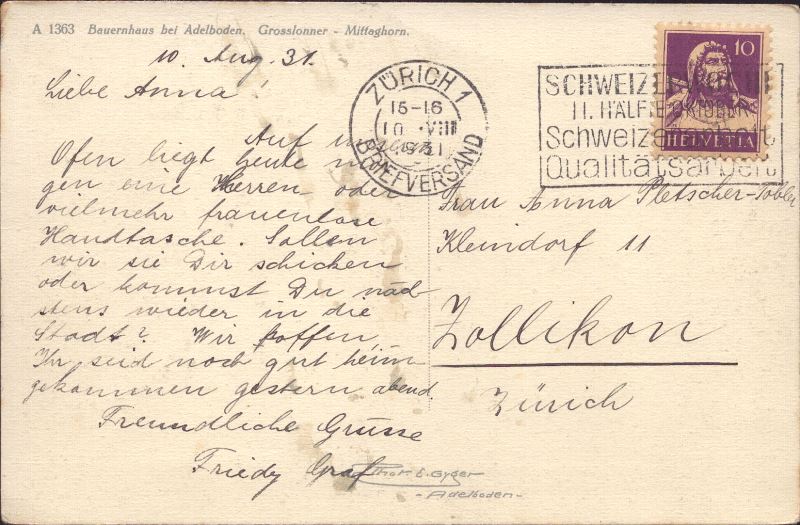 A 1363 Bauernhaus bei Adelboden. Grosslonner - Mittaghorn.
10. Aug. 31.
Liebe Anna!
Auf
Ofen liegt heute
gen eine Herren oder
vielmehr frauenlose
Handtasche. Sollen
wir sie Dir schicken
oder kommst Du näch
stens wieder in die
Stadt? Wir hoffen,
Ihr seid noch gut heim
gekommen gestern abend.
Freundliche Grüsse
Friedy Graf
Phot. E. Gyger
- Adelboden -
ZÜRICH 1
15-16
10. VIII
1931
BRIEFVERSAND
SCHWEIZER
II. HÄLFTE OKTOBER
Schweizerarbeit
Qualitätsarbeit
10
HELVETIA
Frau Anna Pletscher-Tobler
Kleindorf 11
Zollikon
Zürich